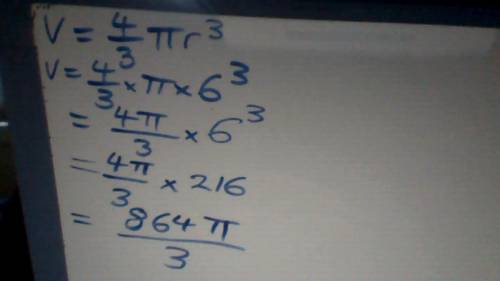 V = 4/3 πr³
V = 4/3 × π × 6³
= 4π/3 × 6³
= 4π/3 × 216
= 864π/3